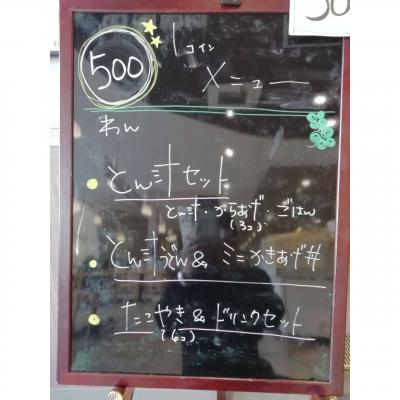 50
500
1コイン
メニュー
わん
とん汁セット
とん汁・からあげ・ごはん
(3コ)
とん汁うどん&ミニかきあげ丼
たこやき&ドリンクセット
(6コ)